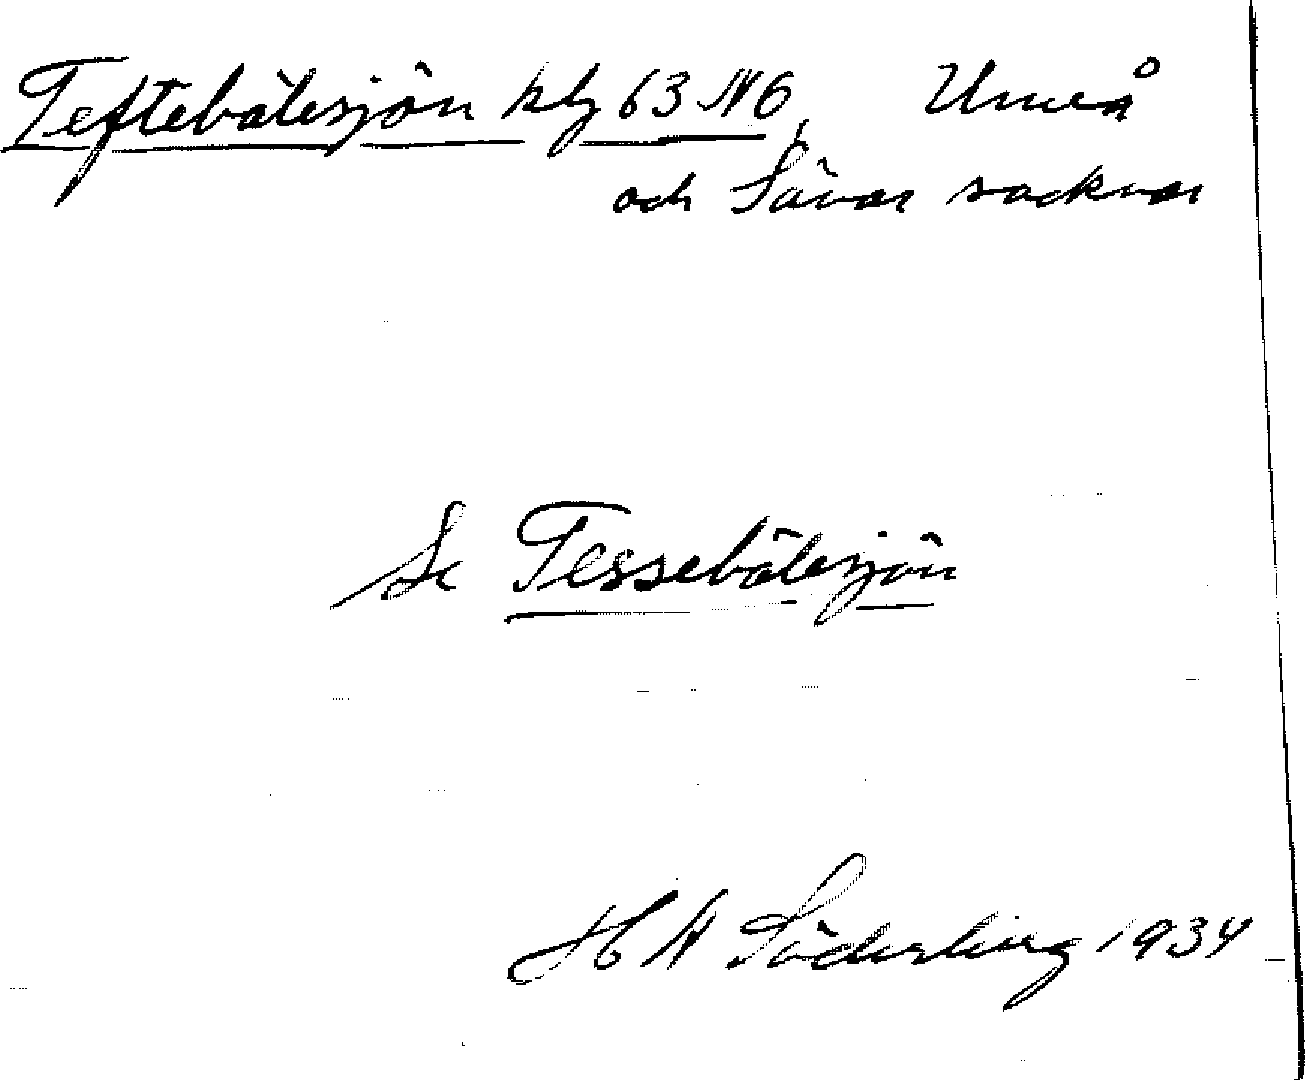 Teftebölesjön kbl 63 N6, Umeå
och Sävar socknar
Se Tessebölesjön
H A Söderling 1934